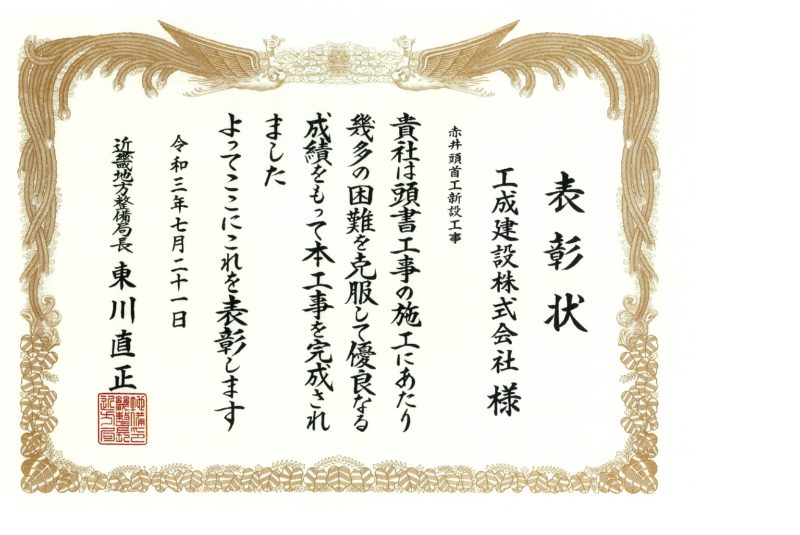 表彰状
工成建設株式会社 様
赤井頭首工新設工事
貴社は頭書工事の施工にあたり
幾多の困難を克服して優良なる
成績をもって本工事を完成され
ました
よってここにこれを表彰します
令和三年七月二十一日
近畿地方整備局長 東川直正